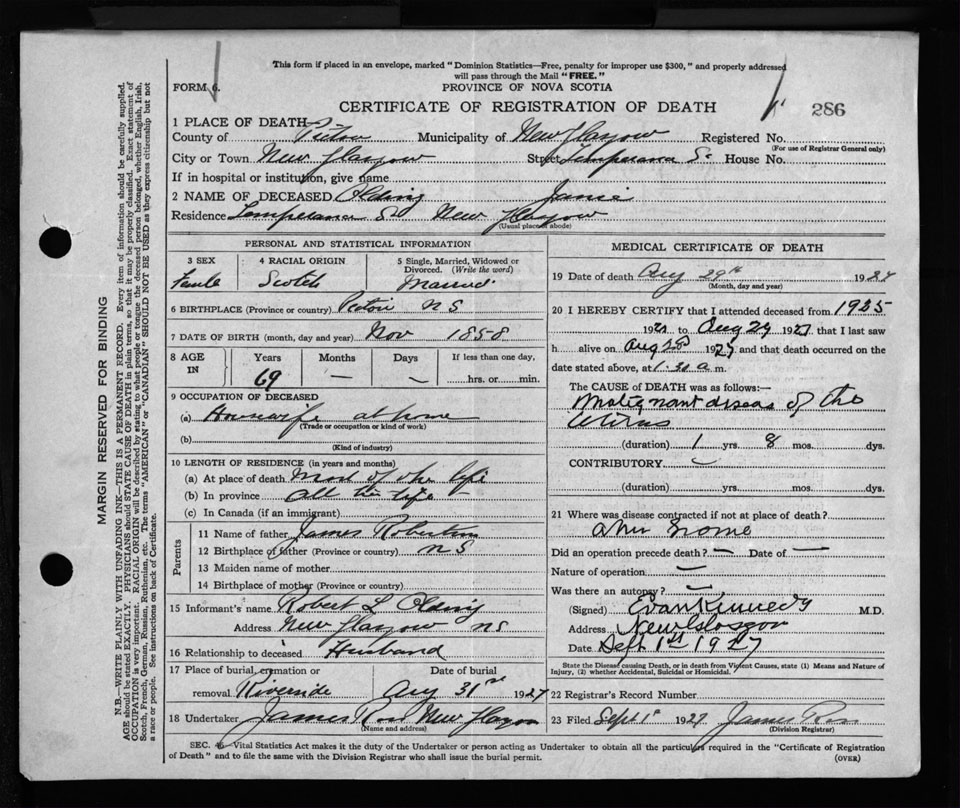 This form if placed in an envelope, marked "Dominion Statistics—Free, penalty for improper use $300," and properly addressed
will pass through the Mail "FREE."
FORM 6.
PROVINCE OF NOVA SCOTIA
CERTIFICATE OF REGISTRATION OF DEATH
286
1 PLACE OF DEATH
County of Pictou Municipality of New Glasgow Registered No.
(For use of Registrar General only)
City or Town New Glasgow Street Temperance St House No.
If in hospital or institution, give name
2 NAME OF DECEASED Olding Janie
Residence Temperance St New Glasgow
(Usual place of abode)
PERSONAL AND STATISTICAL INFORMATION
3 SEX 4 RACIAL ORIGIN 5 Single, Married, Widowed or
Divorced. (Write the word)
Female Scotch Married
6 BIRTHPLACE (Province or country) Pictou N S
7 DATE OF BIRTH (month, day and year) Nov 1858
8 AGE IN Years Months Days If less than one day,
69 — — hrs. or min.
9 OCCUPATION OF DECEASED
(a) Housewife at home
(Trade or occupation or kind of work)
(b)
(Kind of industry)
10 LENGTH OF RESIDENCE (in years and months)
(a) At place of death most of her life
(b) In province all her life
(c) In Canada (if an immigrant)
Parents
11 Name of father James Robertson
12 Birthplace of father (Province or country) N S
13 Maiden name of mother
14 Birthplace of mother (Province or country)
15 Informant's name Robert L Olding
Address New Glasgow NS
16 Relationship to deceased Husband
17 Place of burial, cremation or Date of burial
removal Riverside Aug 31st 1927
18 Undertaker James Ross New Glasgow
(Name and address)
MEDICAL CERTIFICATE OF DEATH
19 Date of death Aug 29th 1927
(Month, day and year)
20 I HEREBY CERTIFY that I attended deceased from 1925
192 to Aug 29 1927, that I last saw
h alive on Aug 28 1927 and that death occurred on the
date stated above, at 1.30 a m.
The CAUSE of DEATH was as follows:—
Malignant diseas of the
uterus
(duration) 1 yrs. 8 mos. dys.
CONTRIBUTORY
(duration) yrs. mos. dys.
21 Where was disease contracted if not at place of death?
at her home
Did an operation precede death? — Date of —
Nature of operation —
Was there an autopsy? —
(Signed) Evan Kennedy M.D.
Address New Glasgow
Date Sept 1st 1927
State the Disease causing Death, or in death from Violent Causes, state (1) Means and Nature of
Injury, (2) whether Accidental, Suicidal or Homicidal.
22 Registrar's Record Number
23 Filed Sept 1st 1927 James Ross
(Division Registrar)
SEC. 6— Vital Statistics Act makes it the duty of the Undertaker or person acting as Undertaker to obtain all the particulars required in the "Certificate of Registration
of Death" and to file the same with the Division Registrar who shall issue the burial permit.
(OVER)
MARGIN RESERVED FOR BINDING
N.B.—WRITE PLAINLY WITH UNFADING INK—THIS IS A PERMANENT RECORD. Every item of information should be carefully supplied.
AGE should be stated EXACTLY. PHYSICIANS should STATE CAUSE OF DEATH in plain terms, so that it may be properly classified. Exact statement of
OCCUPATION is very important. RACIAL ORIGIN will be described by stating to what people or tongue the deceased person belonged, whether English, Irish,
Scotch, French, German, Russian, Ruthenian, etc. The terms "AMERICAN" or "CANADIAN" SHOULD NOT BE USED as they express citizenship but not
a race or people. See instructions on back of Certificate.